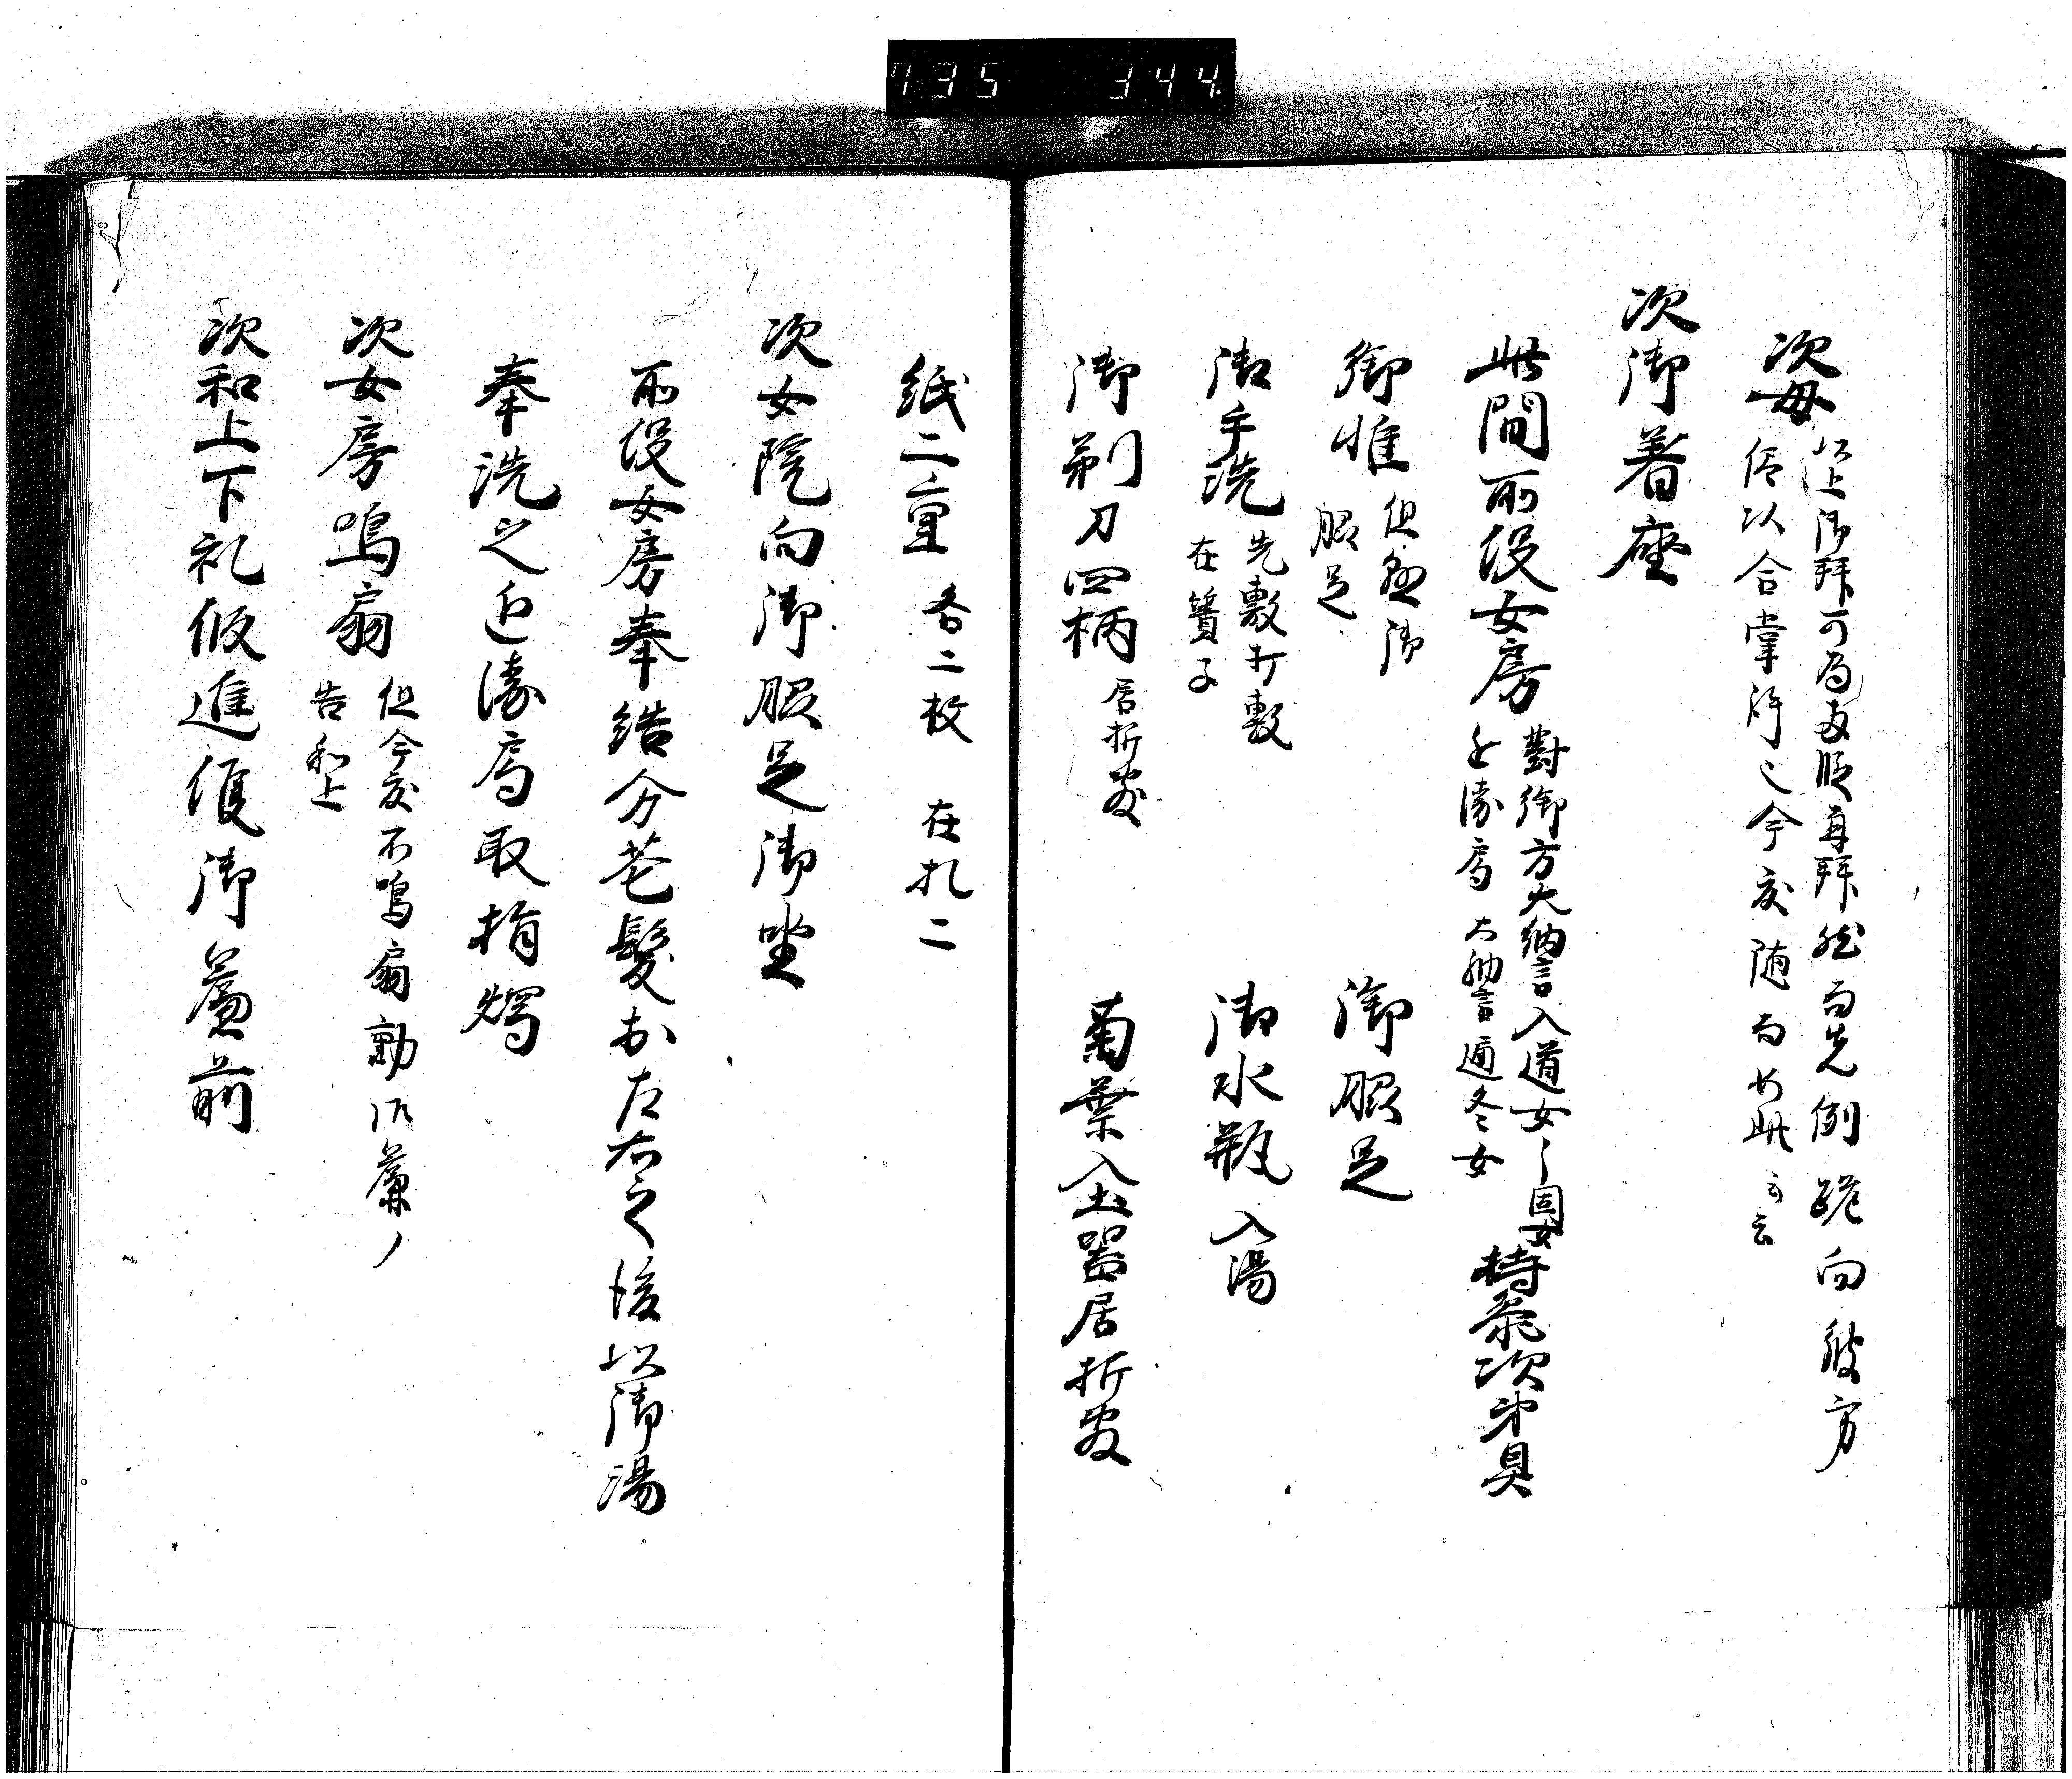 735 344
次母 以上御拜可為両段再拜然而先例跪向彼方
低以合掌許也今度随而如此可云
次御着座
此間所役女房 對御方大納言入道女
近濤局大納言通冬女 持参次第具
御帷 但懸御
脇足 御脇足
御手洗 先敷打敷
在簀子 御水瓶 入湯
御剃刀四柄 居折敷 菊葉 入土器居折敷
紙二重 各二枚 在札二
次女院向御脇足御坐
所役女房奉結分荒髪於左右之後以御湯
奉洗之近濤局取指燭
次女房鳴扇 但今度不鳴扇動御簾
告和上
次和上下礼仮進候御簾前